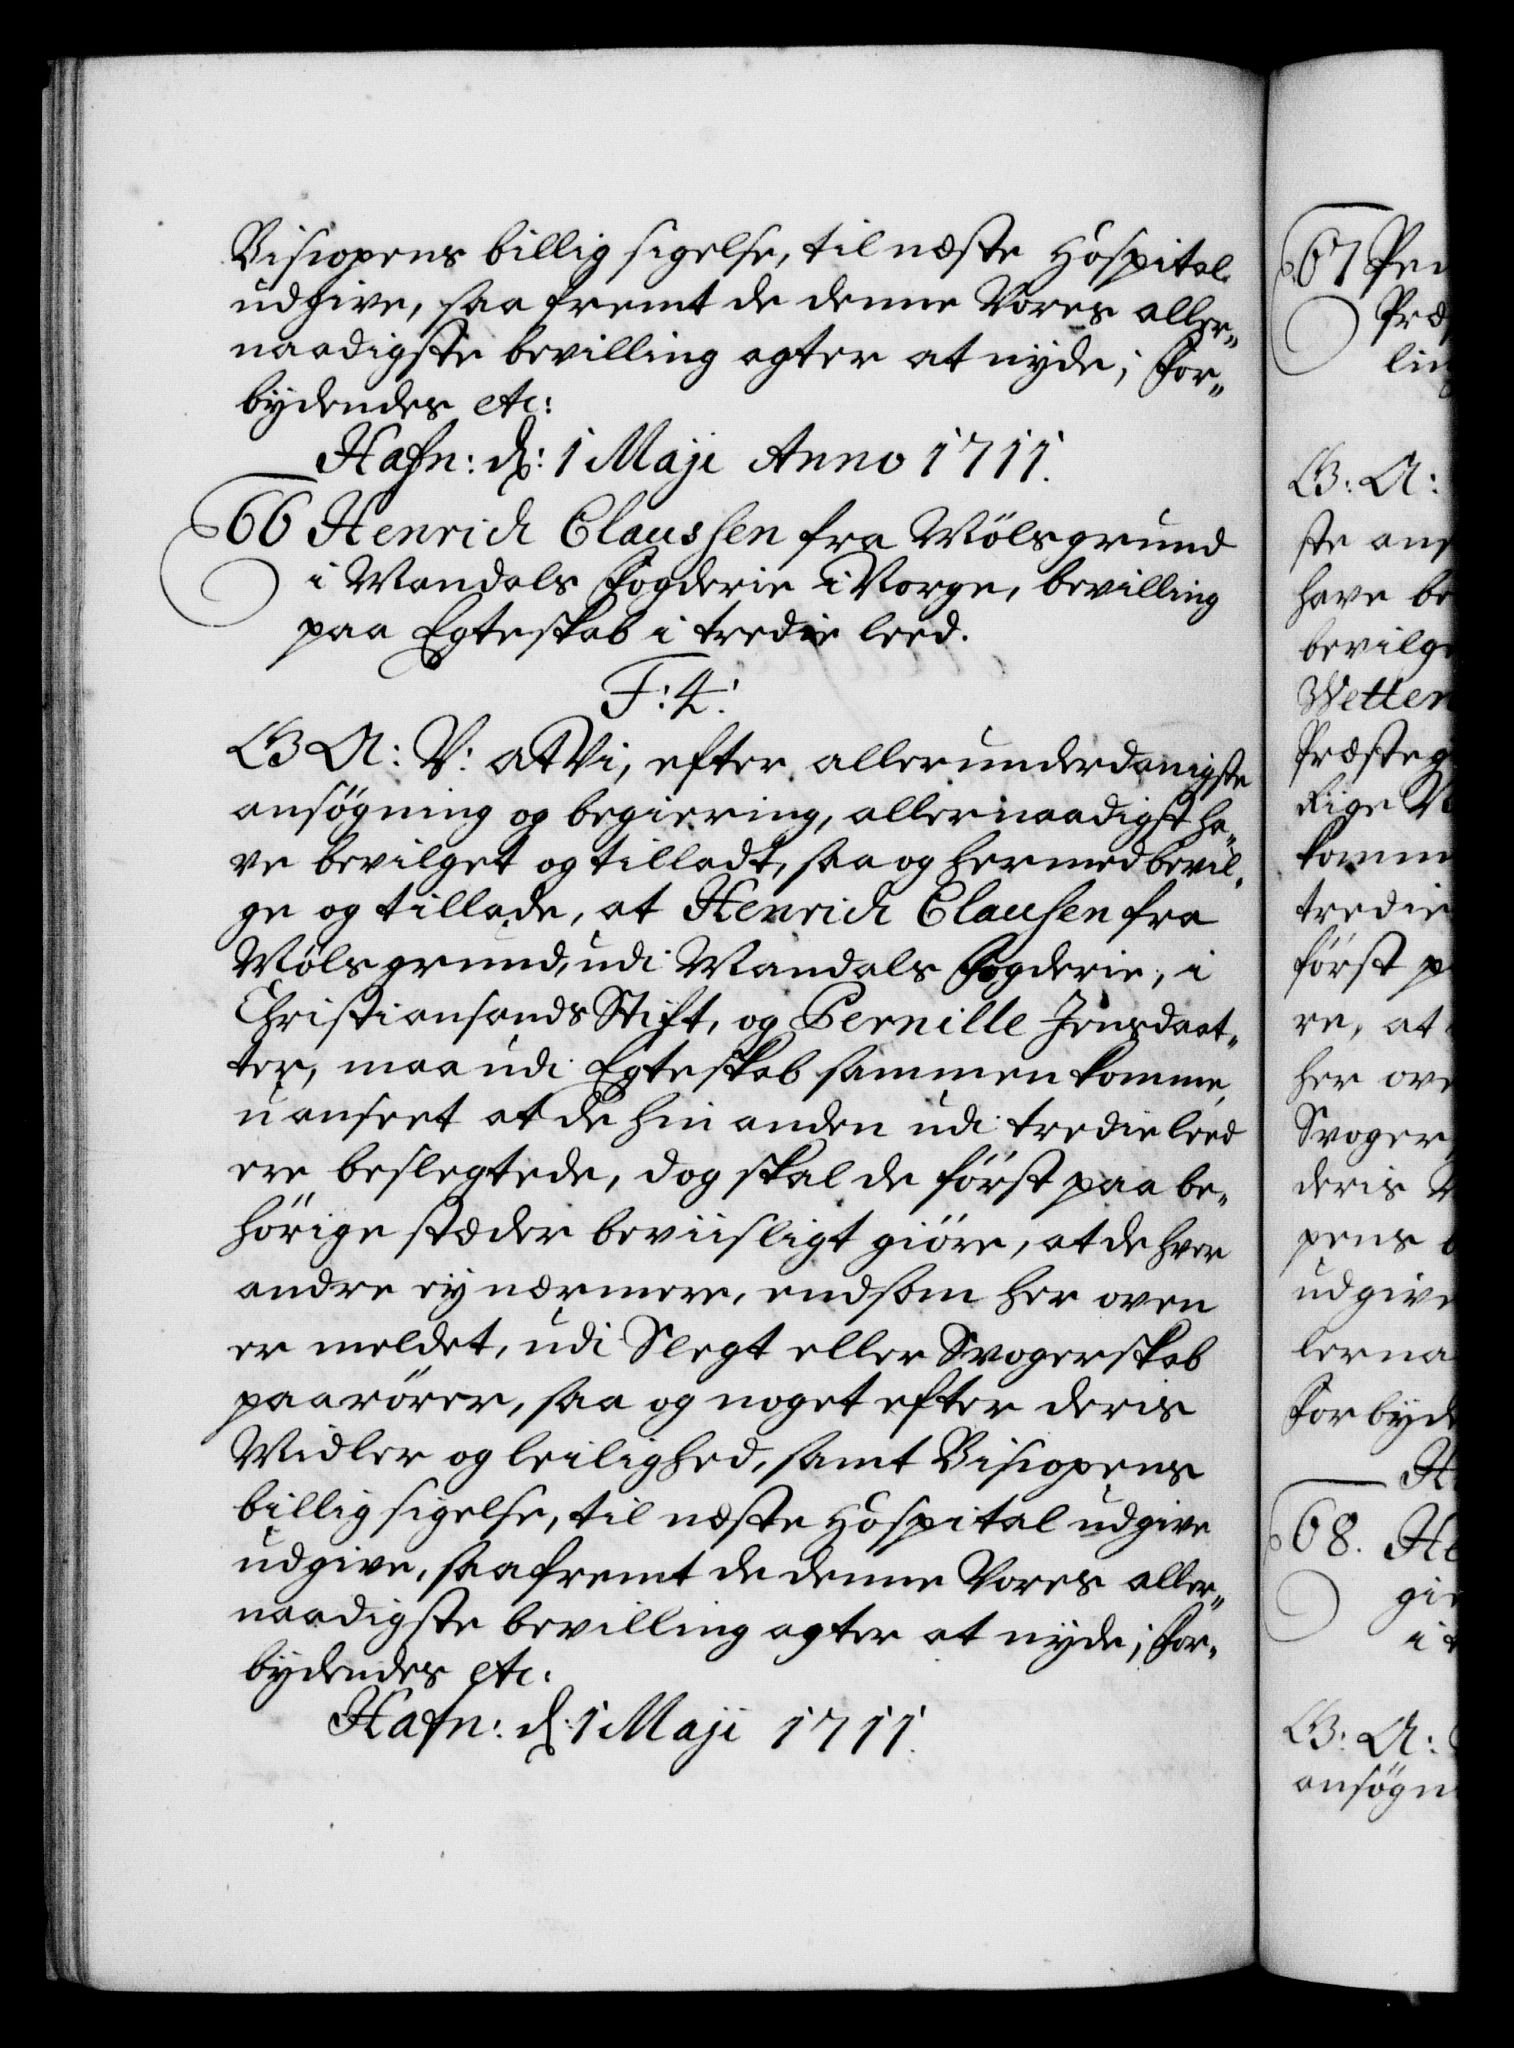 Bisropens billig sigelse, til næste Hospital
udgive, saa fremt de denne Vores aller„
naadigste bevilling agter at nyde; for„
bydendes etc:
Hafn: d: 1 Maji Anno 1711.
66 Henrich Claussen fra Mölsgrund
i Mandals Fogderie i Norge, bevilling
paa Egteskab i tredie leed.
F: 4:
G A: V: at Vi, efter allerunderdanigste
ansögning og begiering, allernaadigst ha„
ve bevilget og tilladt, saa og hermed bevil„
ge og tillade, at Henrich Clausen fra
Mölsgrund, udi Mandals Fogderie, i
Christiansands Stift, og Pernille Jensdaat„
ter, maa udi Egteskab sammen komme,
uanseet at de hin anden udi tredie leed
ere beslegtede, dog skal de först paa be„
hörige stæder beviisligt giöre, at de hver
andre ey nærmere, end som her oven
er meldet, udi Slegt eller Svogerskab
paarörer, saa og noget efter deris
Midler og leilighed, samt Bisropens
billig sigelse, til næste Hospital udgive
udgive, saafremt de denne Vores aller„
naadigste bevilling agter at nyde; for„
bydendes etc:
Hafn: d: 1 Maji 1711.
67 Pe
Præ
lin
G: A:
ste ans
have be
bevilge
Wetter
Præsteg
Rige N
komm
tredie
först p
re, at
her ove
Svoger
deris M
pens b
udgive
lerna
forbyde
H
68. He
gi
i t
G: A:
ansögn